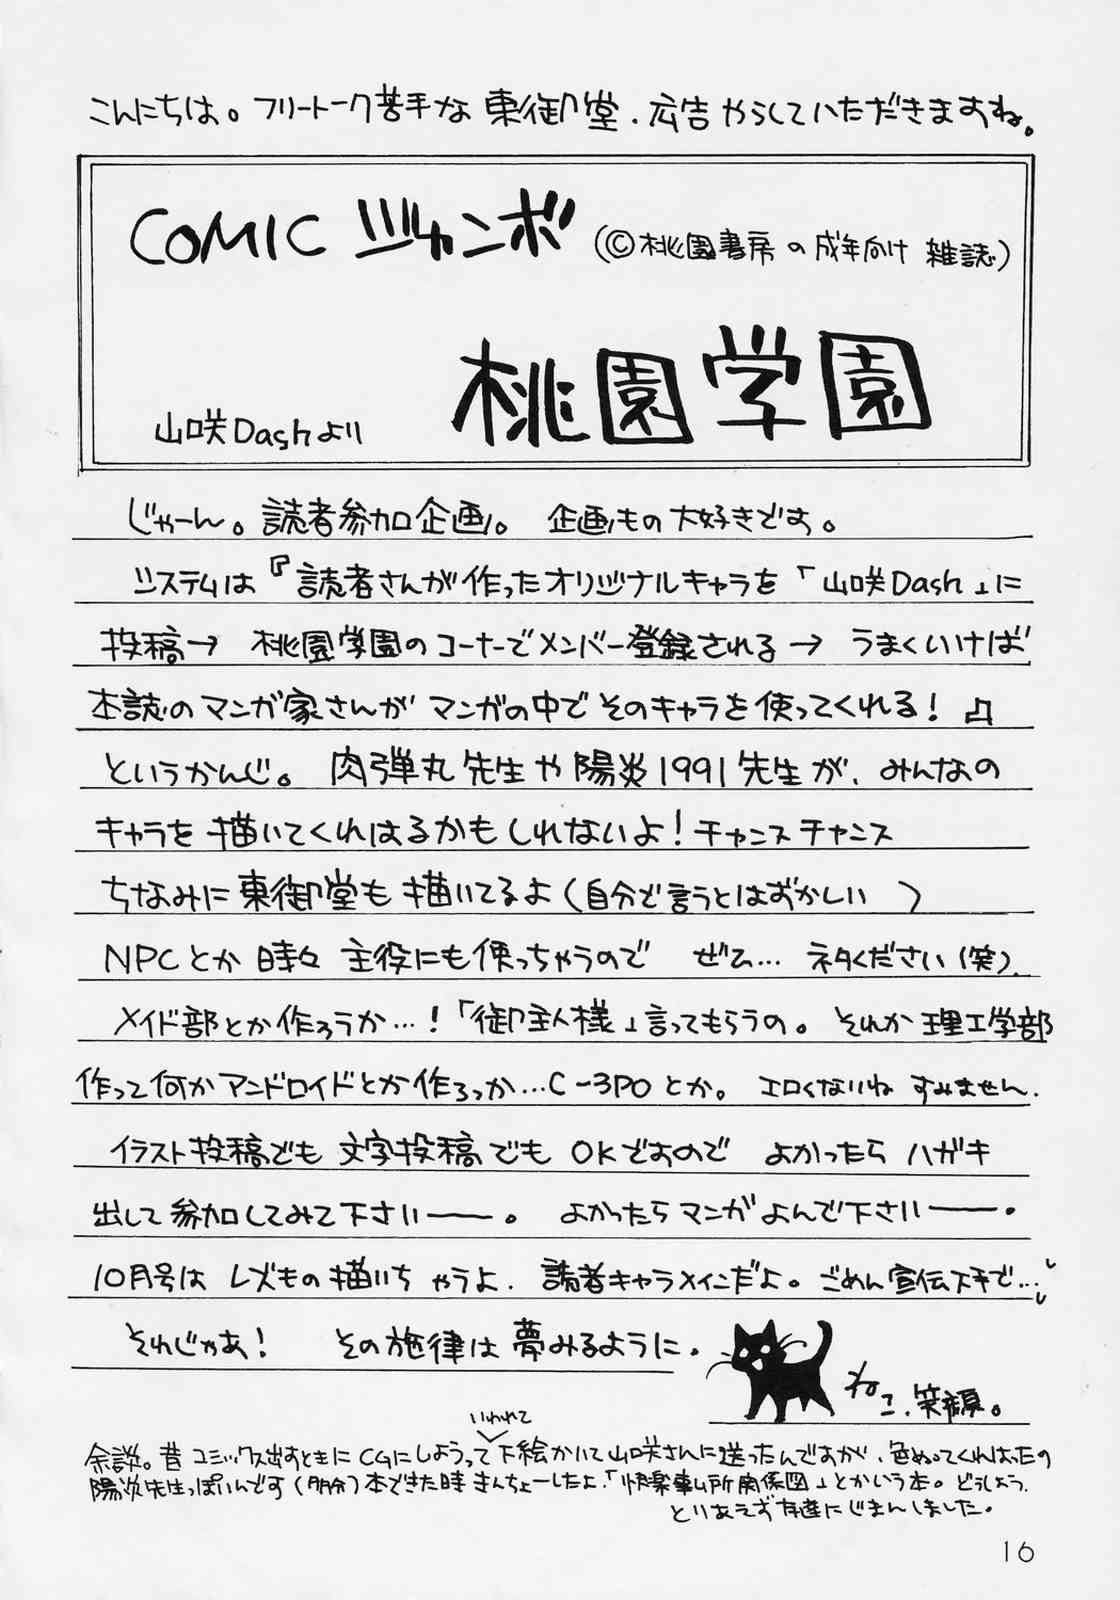 こんにちは。フリートーク苦手な東御堂.広告やらしていただきますね。
COMIC ジャンボ (©桃園書房の成年向け雑誌)
桃園学園
山咲Dashより
じゃーん。読者参加企画。 企画もの大好きです。
システムは『読者さんが作ったオリジナルキャラを「山咲Dash」に
投稿→ 桃園学園のコーナーでメンバー登録される→ うまくいけば
本誌のマンガ家さんがマンガの中でそのキャラを使ってくれる!』
というかんじ。 肉弾丸先生や陽炎1991先生が、みんなの
キャラを描いてくれはるかもしれないよ!チャンスチャンス
ちなみに東御堂も描いてるよ(自分で言うとはずかしい )
NPCとか時々主役にも使っちゃうので ぜひ… ネタください(笑).
メイド部とか作ろうか…!「御主人様」言ってもらうの。それか理工学部
作って何かアンドロイドとか作ろっか…C-3POとか。エロくないね すみません.
イラスト投稿でも文字投稿でもOKですので よかったらハガキ
出して参加してみて下さいーー。 よかったらマンガよんで下さいーー.
10月号はレズもの描いちゃうよ. 読者キャラメインだよ。ごめん宣伝下手で…
それじゃあ! その旋律は夢みるように.
ねこ.笑顔。
いわれて
余談。昔コミックス出すときにCGにしようって下絵かいて山咲さんに送ったんですが、色ぬってくれはったの
陽炎先生っぽいんです(多分)本できた時きんちょーしたよ.「快楽事ム所関係図」とかいう本。どうしよう.
とりあえず友達にじまんしました。
16